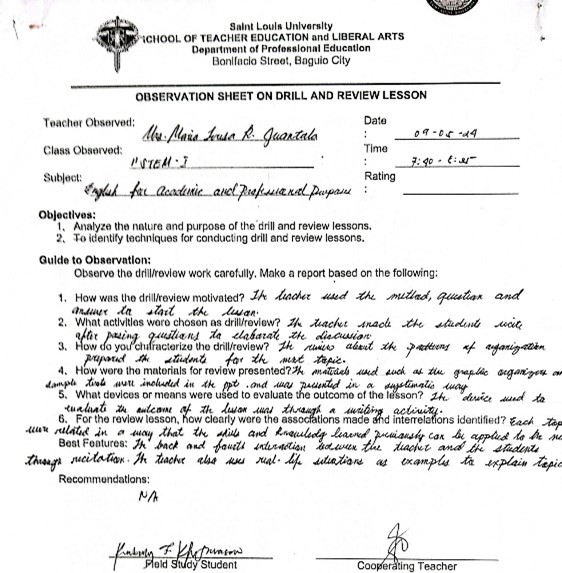 Saint Louis University
SCHOOL OF TEACHER EDUCATION and LIBERAL ARTS
Department of Professional Education
Bonifacio Street, Baguio City
OBSERVATION SHEET ON DRILL AND REVIEW LESSON
Teacher Observed: Mrs. Maria R. Date : 09-05-24
Class Observed: 11 STEM-I Time : 7:40 -
Subject: English for Academic and Professional Purpose Rating
Objectives:
1. Analyze the nature and purpose of the drill and review lessons.
2. To identify techniques for conducting drill and review lessons.
Guide to Observation:
Observe the drill/review work carefully. Make a report based on the following:
1. How was the drill/review motivated? The teacher used the method, question and
answer to start the lesson.
2. What activities were chosen as drill/review? The teacher made the students recite
after posing questions to elaborate the discussion.
3. How do you characterize the drill/review? The review about the patterns of organization
prepared the students for the next topic.
4. How were the materials for review presented? The materials used such as the graphic organizers an
sample texts were included in the ppt. and was presented in a systematic way
5. What devices or means were used to evaluate the outcome of the lesson? The device used to
evaluate the outcome of the lesson was through a writing activity.
6. For the review lesson, how clearly were the associations made and interrelations identified? Each top
were related in a way that the skills and knowledge learned previously can be applied to the
Best Features: The back and fourth interaction between the teacher and the students
through recitation. The teacher also uses real-life situations as examples to explain topic
Recommendations:
N/A
Field Study Student Cooperating Teacher